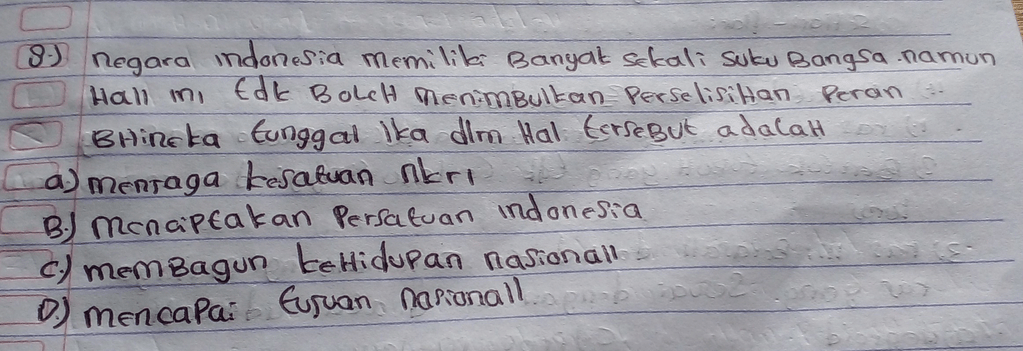 8.) negara indonesia memiliki Banyak sekali suku Bangsa. namun
Hall ini tdk BoleH menimBulkan PerselisiHan. Peran
BHineka tunggal ika dlm Hal terseBut adalaH
a.) menjaga kesatuan nkri
B.) menciptakan Persatuan indonesia
C.) memBagun keHidupan nasionall
D.) mencapai tujuan nasionall